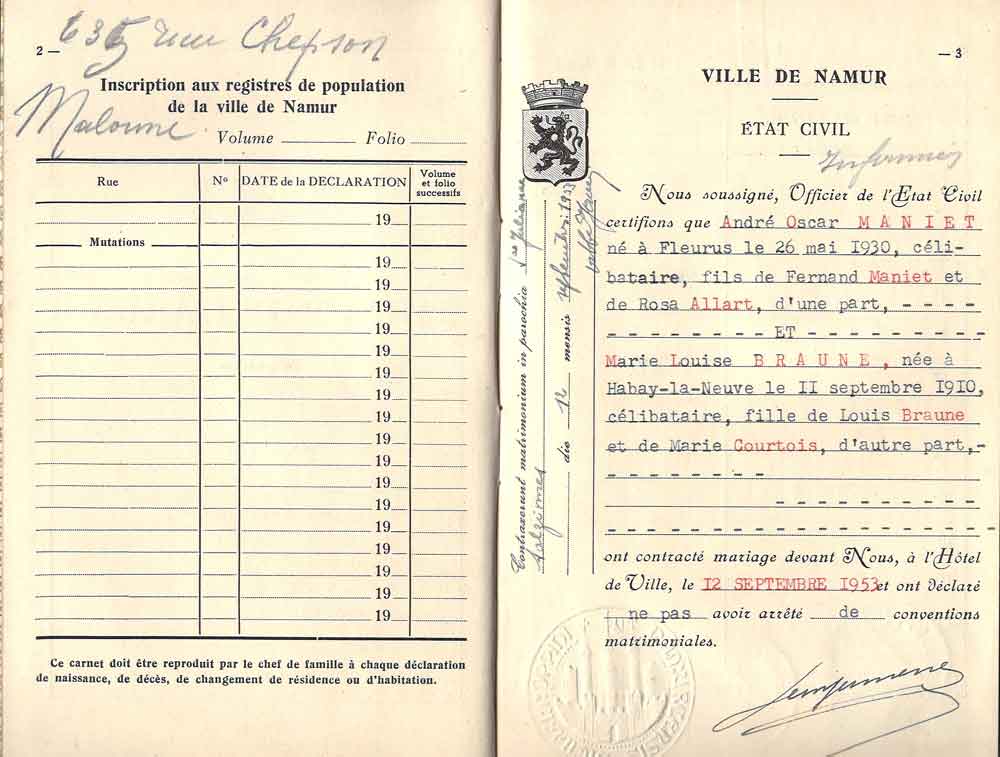 2 —
635 rue Chepson
Malonne
Inscription aux registres de population
de la ville de Namur
Volume Folio
Rue
N° DATE de la DECLARATION
Volume
et folio
successifs
19
Mutations
19
19
19
19
19
19
19
19
19
19
19
19
19
19
19
19
19
Ce carnet doit être reproduit par le chef de famille à chaque déclaration
de naissance, de décès, de changement de résidence ou d'habitation.
— 3
VILLE DE NAMUR
ÉTAT CIVIL
Contraxerunt matrimonium in parochia Ste Julienne
Salzinnes
die 12 mensis septembris 1953
Nous soussigné, Officier de l'Etat Civil
certifions que André Oscar MANIET
né à Fleurus le 26 mai 1930, céli-
bataire, fils de Fernand Maniet et
de Rosa Allart, d'une part, - - - -
- - - - - - - - - ET - - - - - - - - -
Marie Louise BRAUNE, née à
Habay-la-Neuve le II septembre 1910,
célibataire, fille de Louis Braune
et de Marie Courtois, d'autre part,-
- - - - - - - -
- - - - - - - - - -
- - - - - - - - - - - - - - - - - - -
ont contracté mariage devant Nous, à l'Hôtel
de Ville, le 12 SEPTEMBRE 1953 et ont déclaré
ne pas avoir arrêté de conventions
matrimoniales.